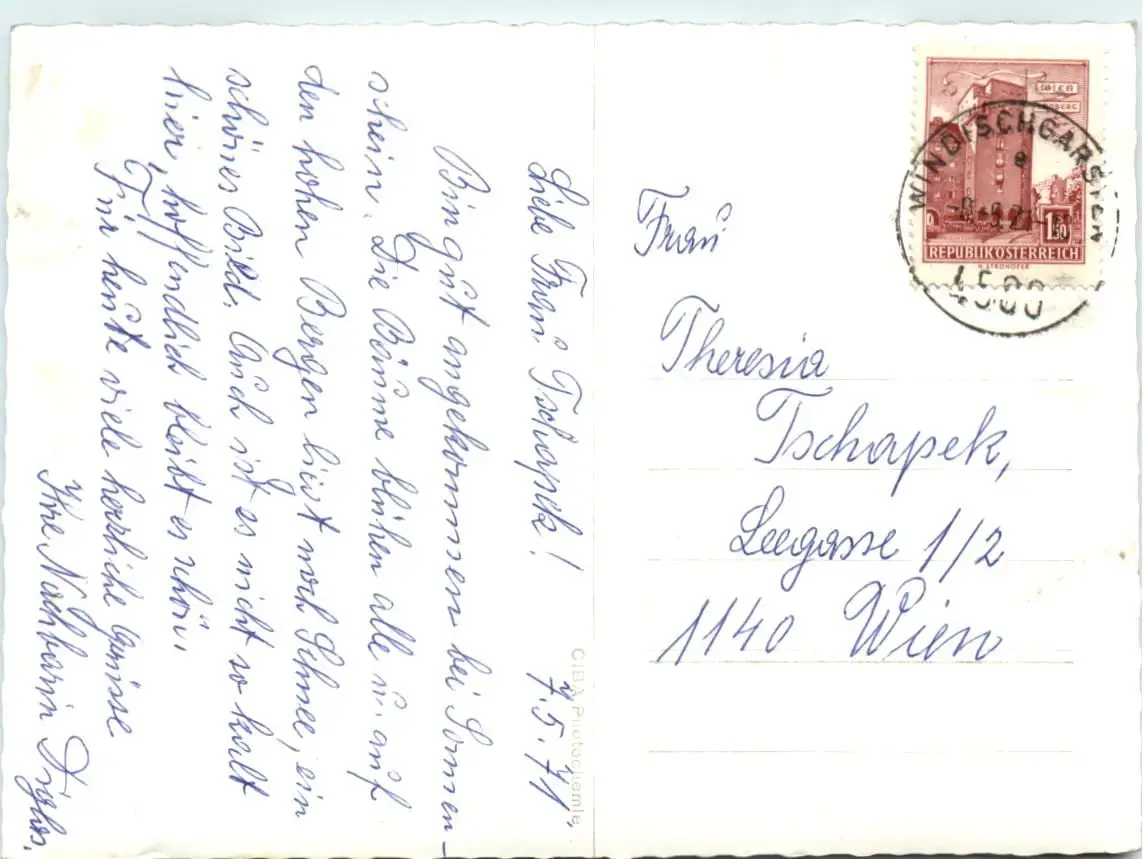 Liebe Frau Tschapek! 7.5.71.
Bin gut angekommen bei Sonnen-
schein. Die Bäume blühen alle u. auf
den hohen Bergen liegt noch Schnee, ein
schönes Bild. Auch ist es nicht so kalt
hier, hoffendlich bleibt es schön.
Für heute viele herzliche Grüsse
Ihre Nachbarin
CIBA Photochemie
Frau
Theresia
Tschapek,
Leegasse 1/2
1140 Wien
WIEN
1.50
REPUBLIK ÖSTERREICH
H. STROHOFER
WINDISCHGARSTEN
4580